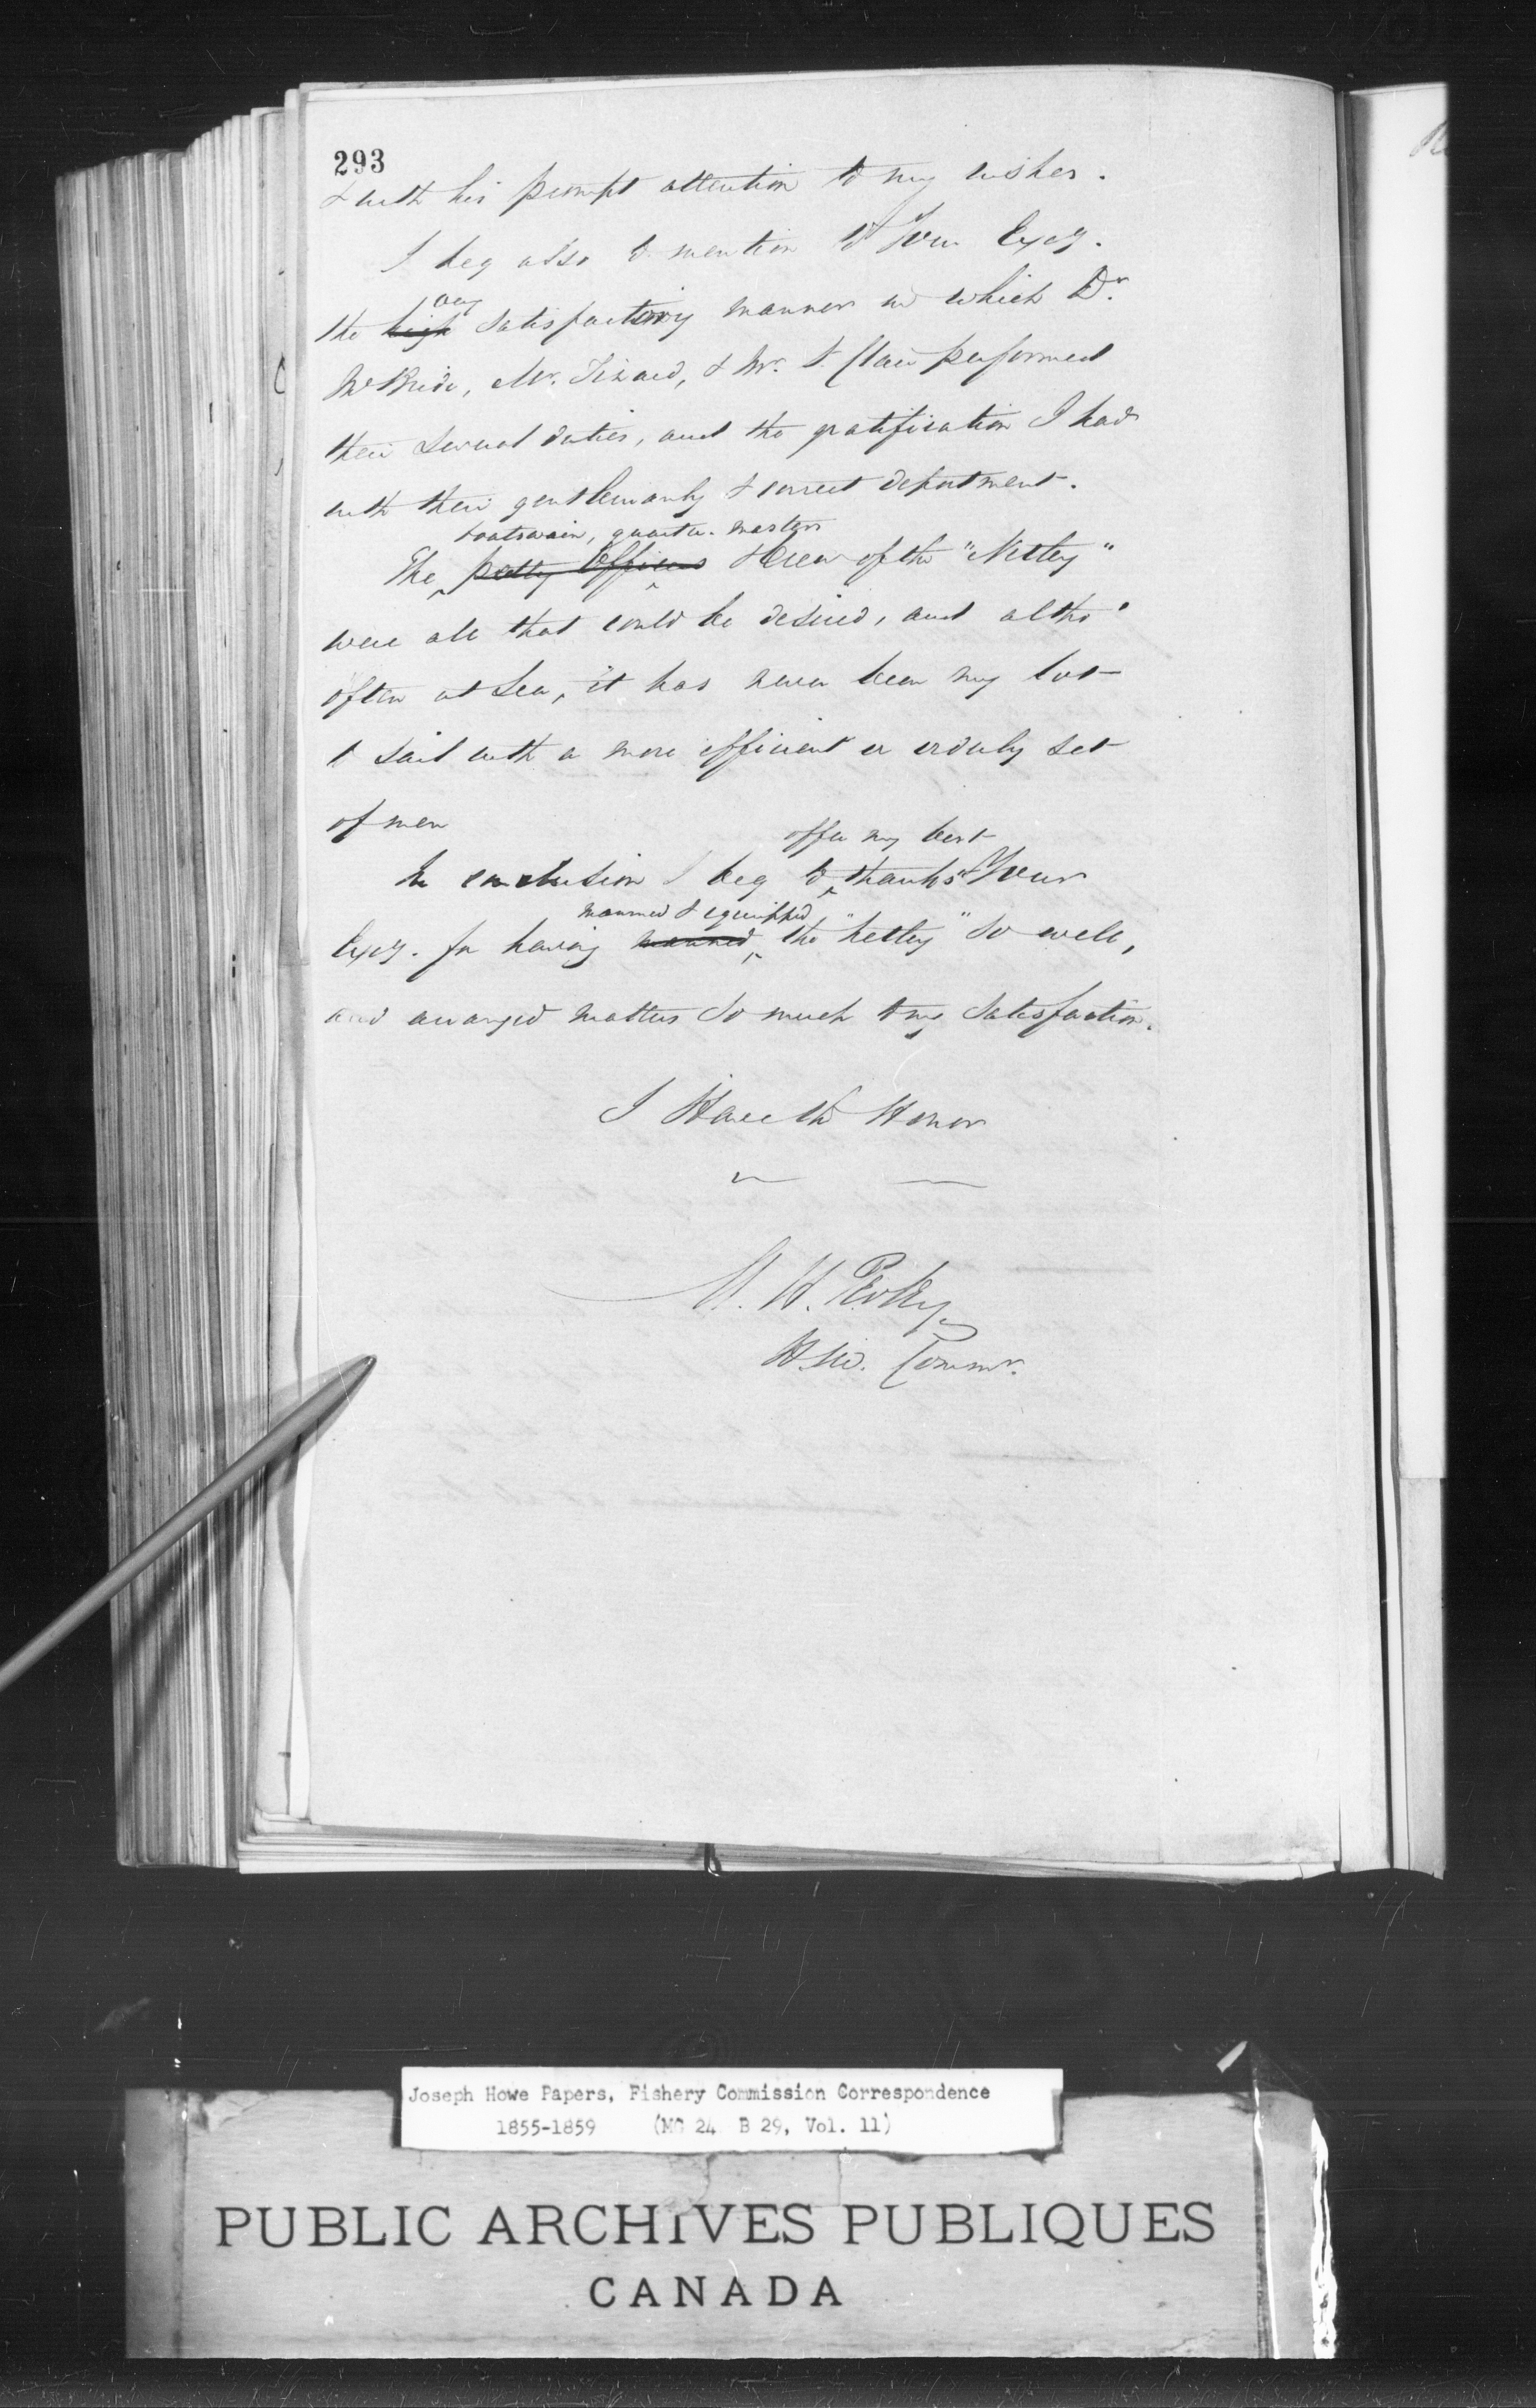 293
& with his prompt attention to my wishes.
I beg also to mention to Your Excy.
the ~~high~~ very satisfactory manner in which Dr.
McBride, Mr. Tizard, & Mr. St. Clair performed
their several duties, and the gratification I had
with their gentlemanly & correct deportment.
boatswain, quarter-masters
The ~~petty Officers~~ & Crew of the "Netley"
were all that could be desired, and altho'
often at Sea, it has never been my lot
to sail with a more efficient or orderly set
of men
offer my best
In conclusion I beg to thanks to Your
manned & equipped
Excy. for having ~~manned~~ the "Netley" so well,
and arranged matters so much to my satisfaction.
I Have the Honor
M. H. Perley
H.M. Commr.
Joseph Howe Papers, Fishery Commission Correspondence
1855-1859 (MG 24 B 29, Vol. 11)
PUBLIC ARCHIVES PUBLIQUES
CANADA